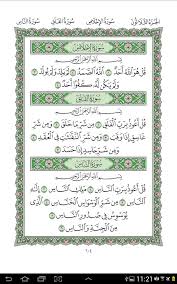 سُورَةُ الإِخْلَاصِ
بِسْمِ اللَّهِ الرَّحْمَٰنِ الرَّحِيمِ
قُلْ هُوَ اللَّهُ أَحَدٌ ١ اللَّهُ الصَّمَدُ ٢ لَمْ يَلِدْ وَلَمْ يُولَدْ ٣
وَلَمْ يَكُن لَّهُ كُفُوًا أَحَدٌ ٤
سُورَةُ الفَلَقِ
بِسْمِ اللَّهِ الرَّحْمَٰنِ الرَّحِيمِ
قُلْ أَعُوذُ بِرَبِّ الْفَلَقِ ١ مِن شَرِّ مَا خَلَقَ ٢ وَمِن شَرِّ
غَاسِقٍ إِذَا وَقَبَ ٣ وَمِن شَرِّ النَّفَّاثَاتِ فِي الْعُقَدِ ٤
وَمِن شَرِّ حَاسِدٍ إِذَا حَسَدَ ٥
سُورَةُ النَّاسِ
بِسْمِ اللَّهِ الرَّحْمَٰنِ الرَّحِيمِ
قُلْ أَعُوذُ بِرَبِّ النَّاسِ ١ مَلِكِ النَّاسِ ٢ إِلَٰهِ
النَّاسِ ٣ مِن شَرِّ الْوَسْوَاسِ الْخَنَّاسِ ٤ الَّذِي
يُوَسْوِسُ فِي صُدُورِ النَّاسِ ٥
مِنَ الْجِنَّةِ وَالنَّاسِ ٦
٦٠٤
11:21